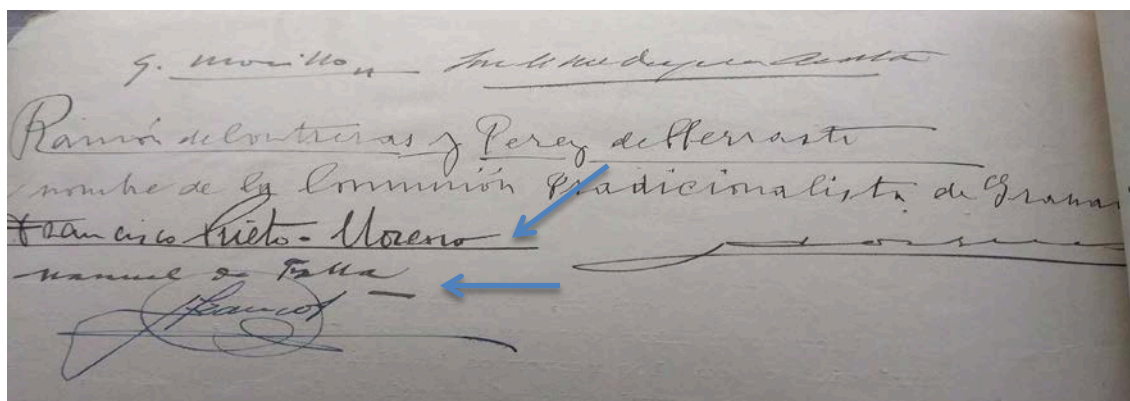 G. Morillo
Ramón de Contreras y Perez de Herrasti
nombre de la Comunión Tradicionalista de Grana
Francisco Prieto-Moreno
Manuel de Falla